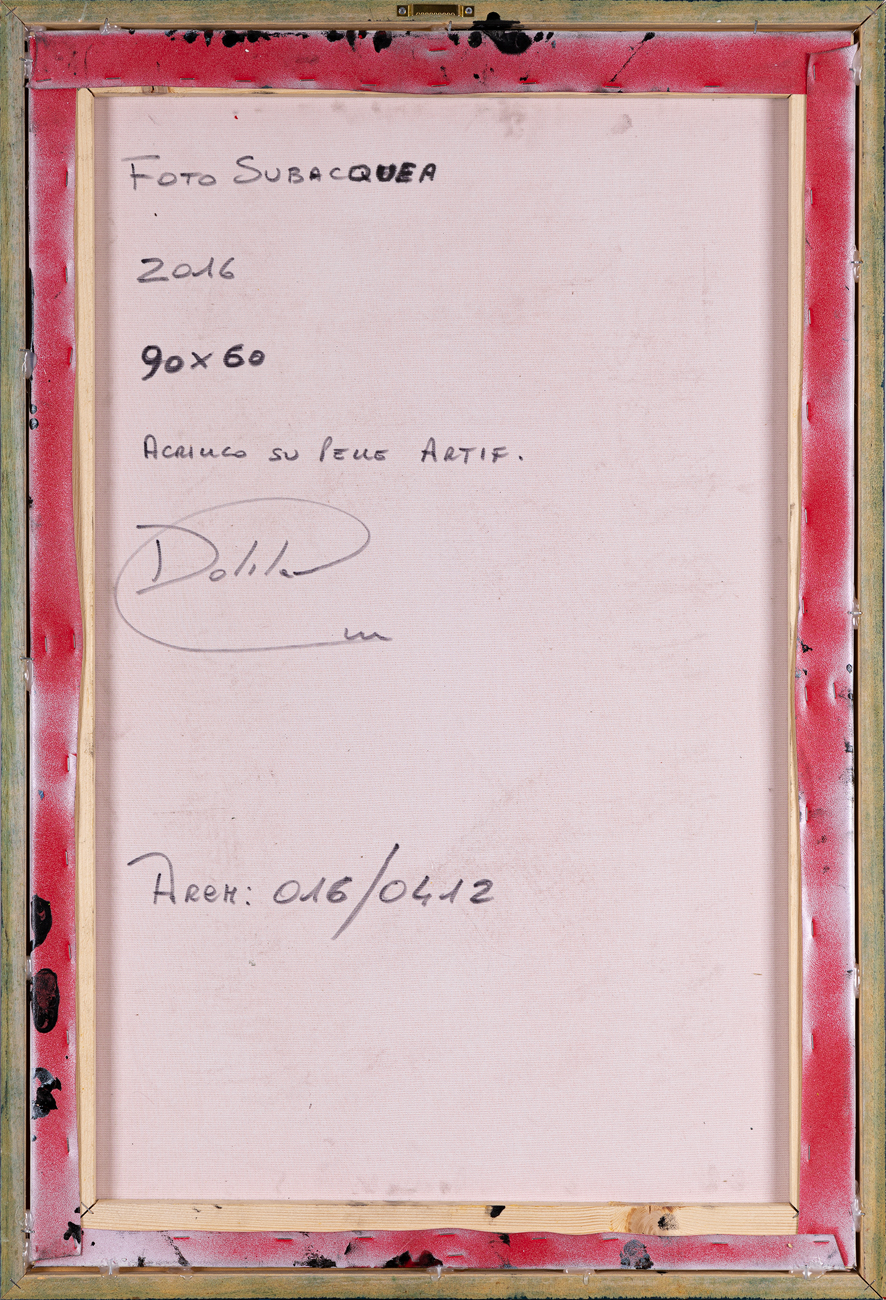 FOTO SUBACQUEA
2016
90x60
ACRILICO SU PELLE ARTIF.
ARCH: 016/0412